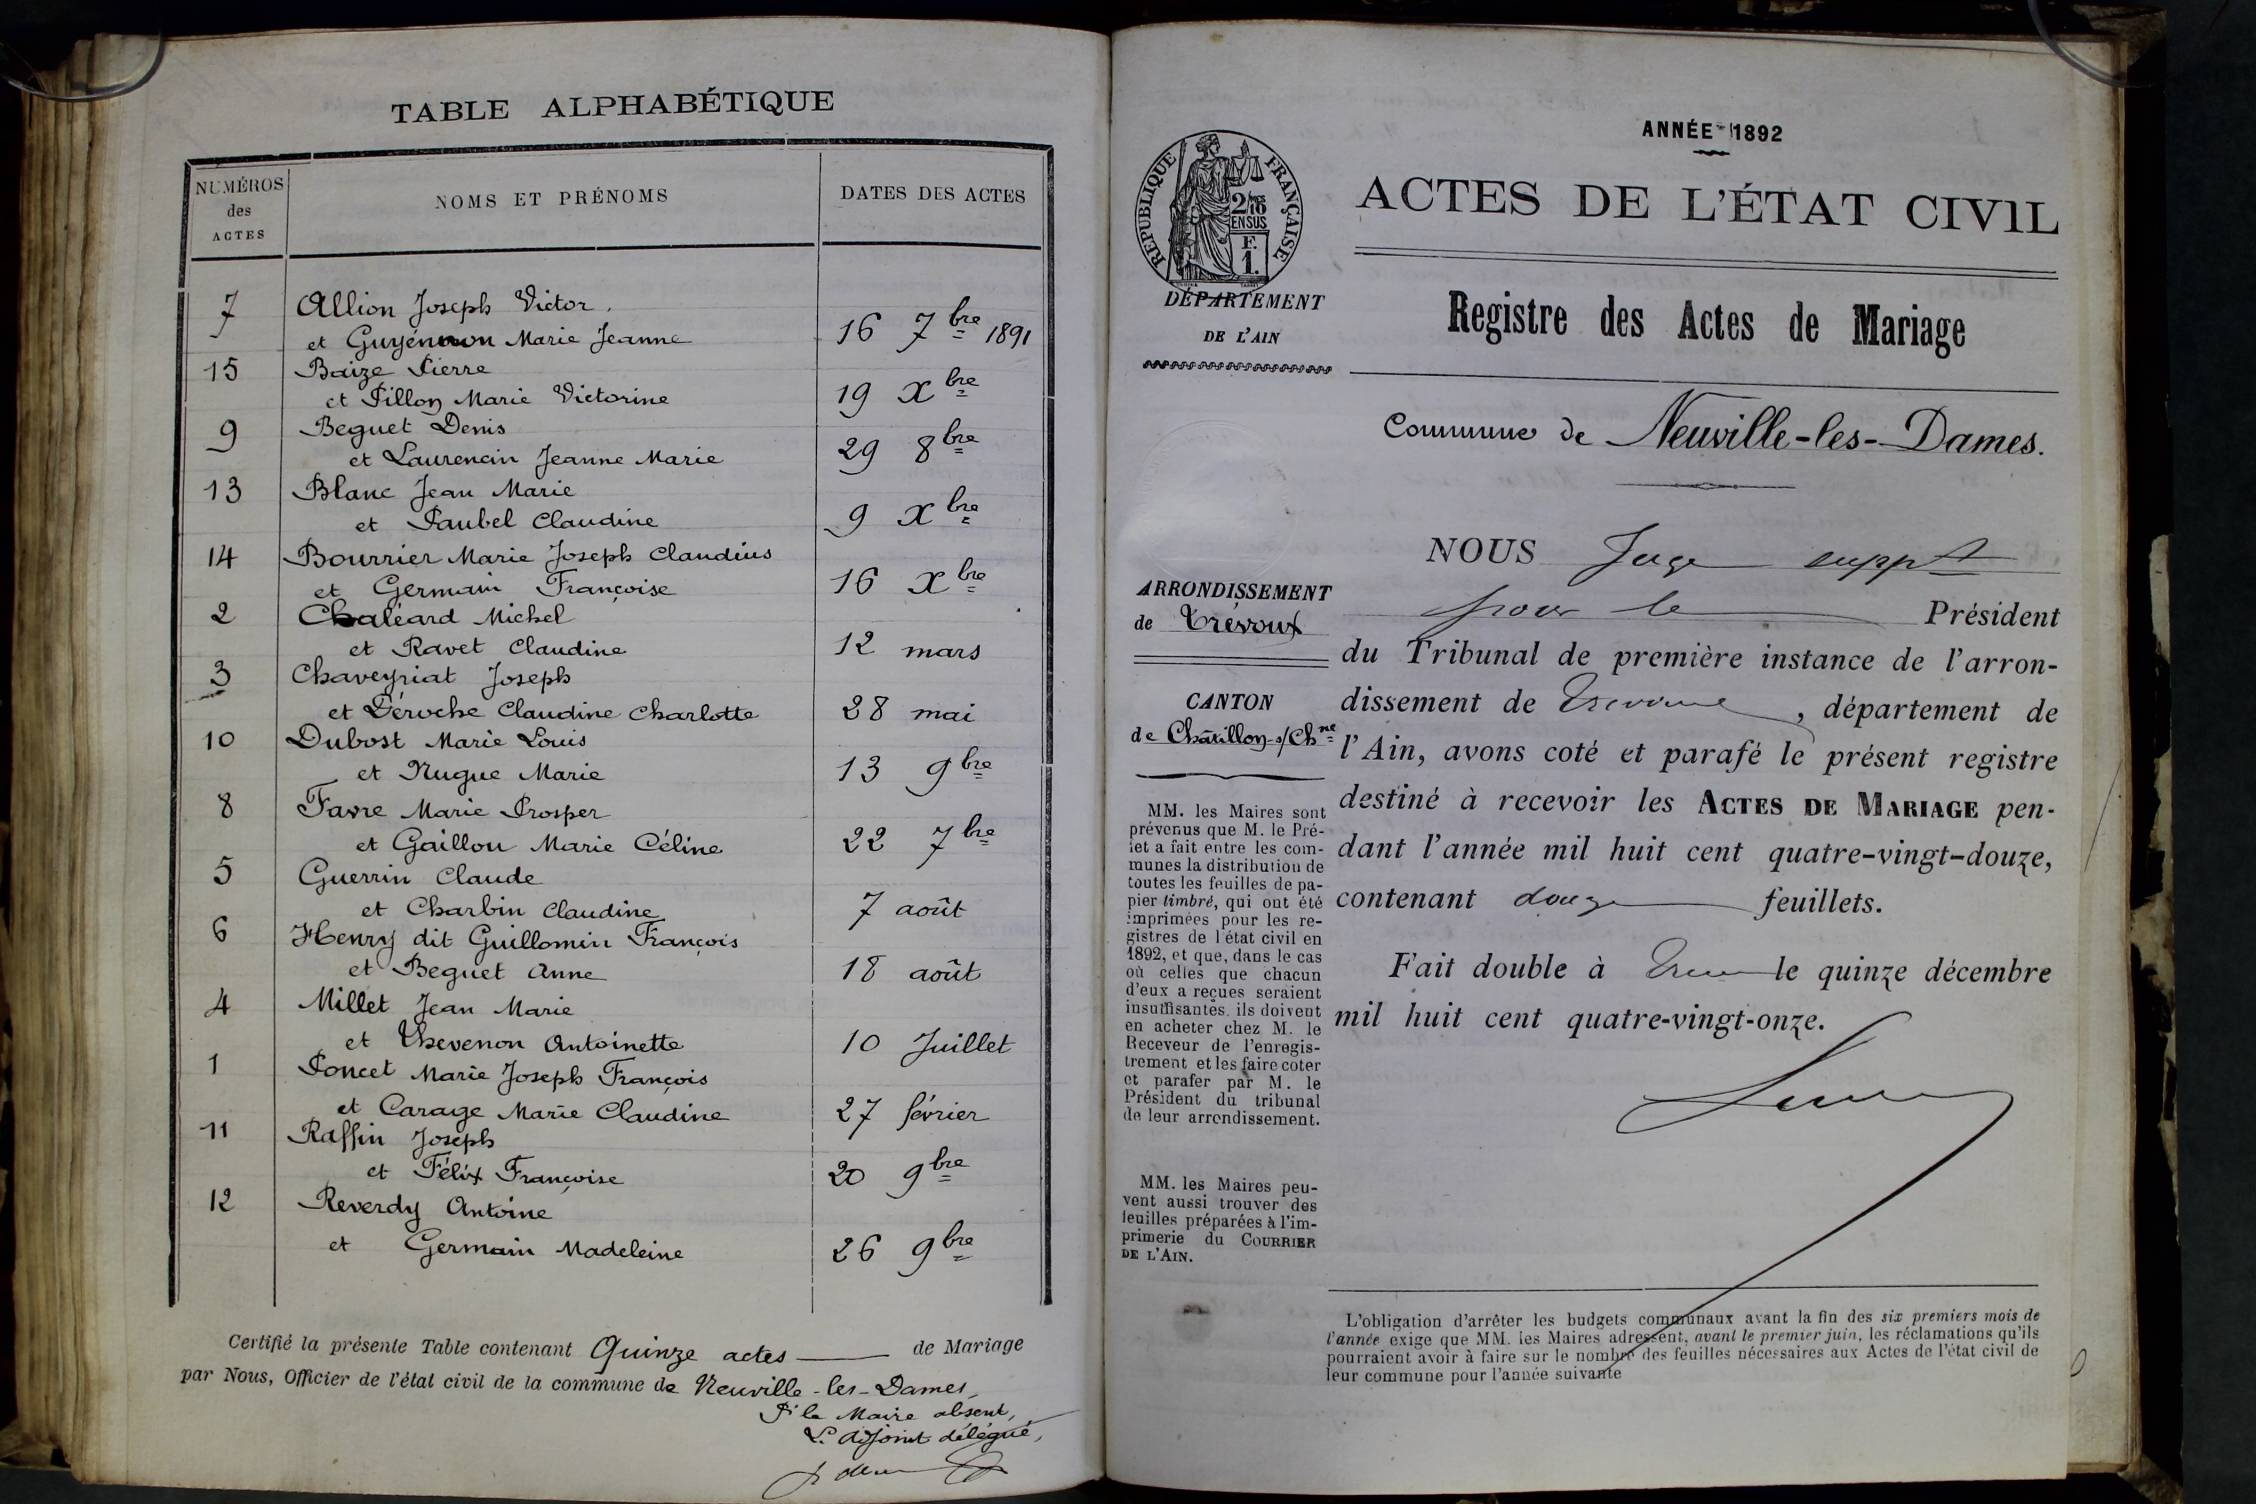 TABLE ALPHABÉTIQUE
NUMÉROS
des
ACTES
NOMS ET PRÉNOMS
DATES DES ACTES
7 Allion Joseph Victor
et Guyénnon Marie Jeanne 16 7bre 1891
15 Baize Pierre
et Pillon Marie Victorine 19 Xbre
9 Beguet Denis
et Laurencin Jeanne Marie 29 8bre
13 Blanc Jean Marie
et Paubel Claudine 9 Xbre
14 Bourrier Marie Joseph Claudius
et Germain Françoise 16 Xbre
2 Chaléard Michel
et Ravet Claudine 12 mars
3 Chaveyriat Joseph
et Déroche Claudine Charlotte 28 mai
10 Dubost Marie Louis
et Nugue Marie 13 9bre
8 Favre Marie Prosper
et Gaillou Marie Céline 22 7bre
5 Guerrin Claude
et Charbin Claudine 7 août
6 Henry dit Guillomin François
et Beguet Anne 18 août
4 Millet Jean Marie
et Thevenon Antoinette 10 Juillet
1 Poncet Marie Joseph François
et Carage Marie Claudine 27 février
11 Raffin Joseph
et Félix Françoise 20 9bre
12 Reverdy Antoine
et Germain Madeleine 26 9bre
Certifié la présente Table contenant Quinze actes de Mariage
par Nous, Officier de l'état civil de la commune de Neuville-les-Dames,
Pr le Maire absent,
L'adjoint délégué,
ANNÉE 1892
RÉPUBLIQUE FRANÇAISE
2/10mes
EN SUS
F.
1.
ACTES DE L'ÉTAT CIVIL
DÉPARTEMENT
DE L'AIN
Registre des Actes de Mariage
Commune de Neuville-les-Dames.
ARRONDISSEMENT
de Trévoux
CANTON
de Châtillon-s/Chne
MM. les Maires sont
prévenus que M. le Pré-
fet a fait entre les com-
munes la distribution de
toutes les feuilles de pa-
pier timbré, qui ont été
imprimées pour les re-
gistres de l'état civil en
1892, et que, dans le cas
où celles que chacun
d'eux a reçues seraient
insuffisantes, ils doivent
en acheter chez M. le
Receveur de l'enregis-
trement et les faire coter
et parafer par M. le
Président du tribunal
de leur arrondissement.
MM. les Maires peu-
vent aussi trouver des
feuilles préparées à l'im-
primerie du COURRIER
DE L'AIN.
NOUS Juge suppt
pour le Président
du Tribunal de première instance de l'arron-
dissement de Trévoux, département de
l'Ain, avons coté et parafé le présent registre
destiné à recevoir les ACTES DE MARIAGE pen-
dant l'année mil huit cent quatre-vingt-douze,
contenant douze feuillets.
Fait double à Trévoux le quinze décembre
mil huit cent quatre-vingt-onze.
L'obligation d'arrêter les budgets communaux avant la fin des six premiers mois de
l'année exige que MM. les Maires adressent, avant le premier juin, les réclamations qu'ils
pourraient avoir à faire sur le nombre des feuilles nécessaires aux Actes de l'état civil de
leur commune pour l'année suivante